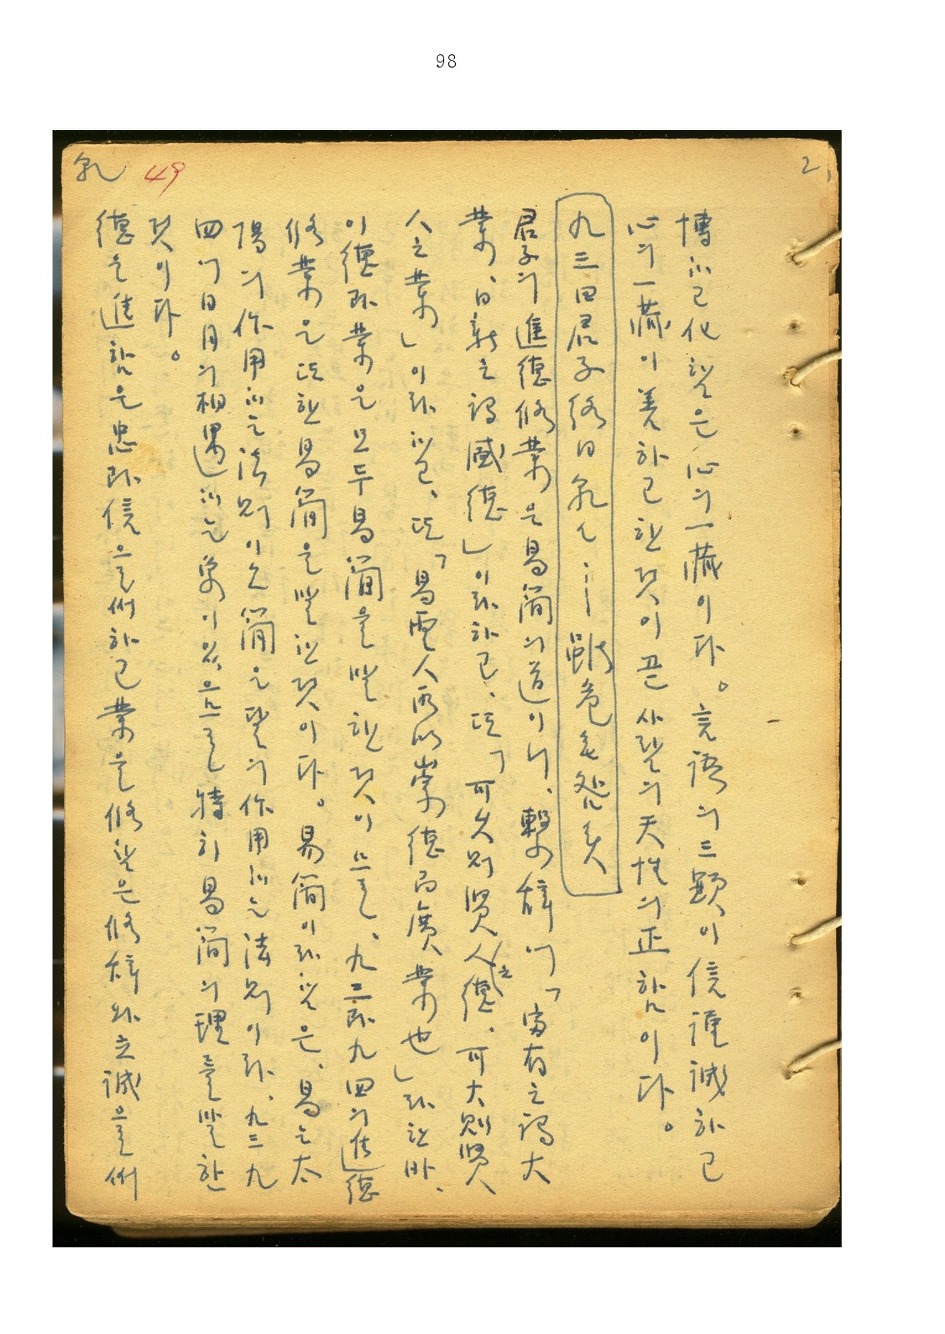 98
乾 49
2
博而己化함은 心의 一藏이다。言語의 三顯이 信謹誠하고
心의 一藏이 善하고 한 것이 곧 사람의 天性의 正함이다。
九三曰君子終日乾乀……雖危无咎矣
君子의 進德修業은 易簡의 道이니、繫辭에「富有之謂大
業、日新之謂盛德」이라하고、또「可久則賢人之德、可大則賢
人之業」이라 하고、또「易聖人所以崇德而廣業也」라 한 바、
이 德과 業은 모두 易簡을 말한 것이므로、九三과 九四의 進德
修業은 또한 易簡을 말한 것이다。易簡이라 함은、易는 太
陽의 作用하는 法則이오 簡은 달의 作用하는 法則이라、九三九
四에 日月의 相遇하는 象이 있으므로 特히 易簡의 理를 말한
것이다。
德을 進함은 忠과 信을 써하고 業을 修함은 修辭와 立誠을 써